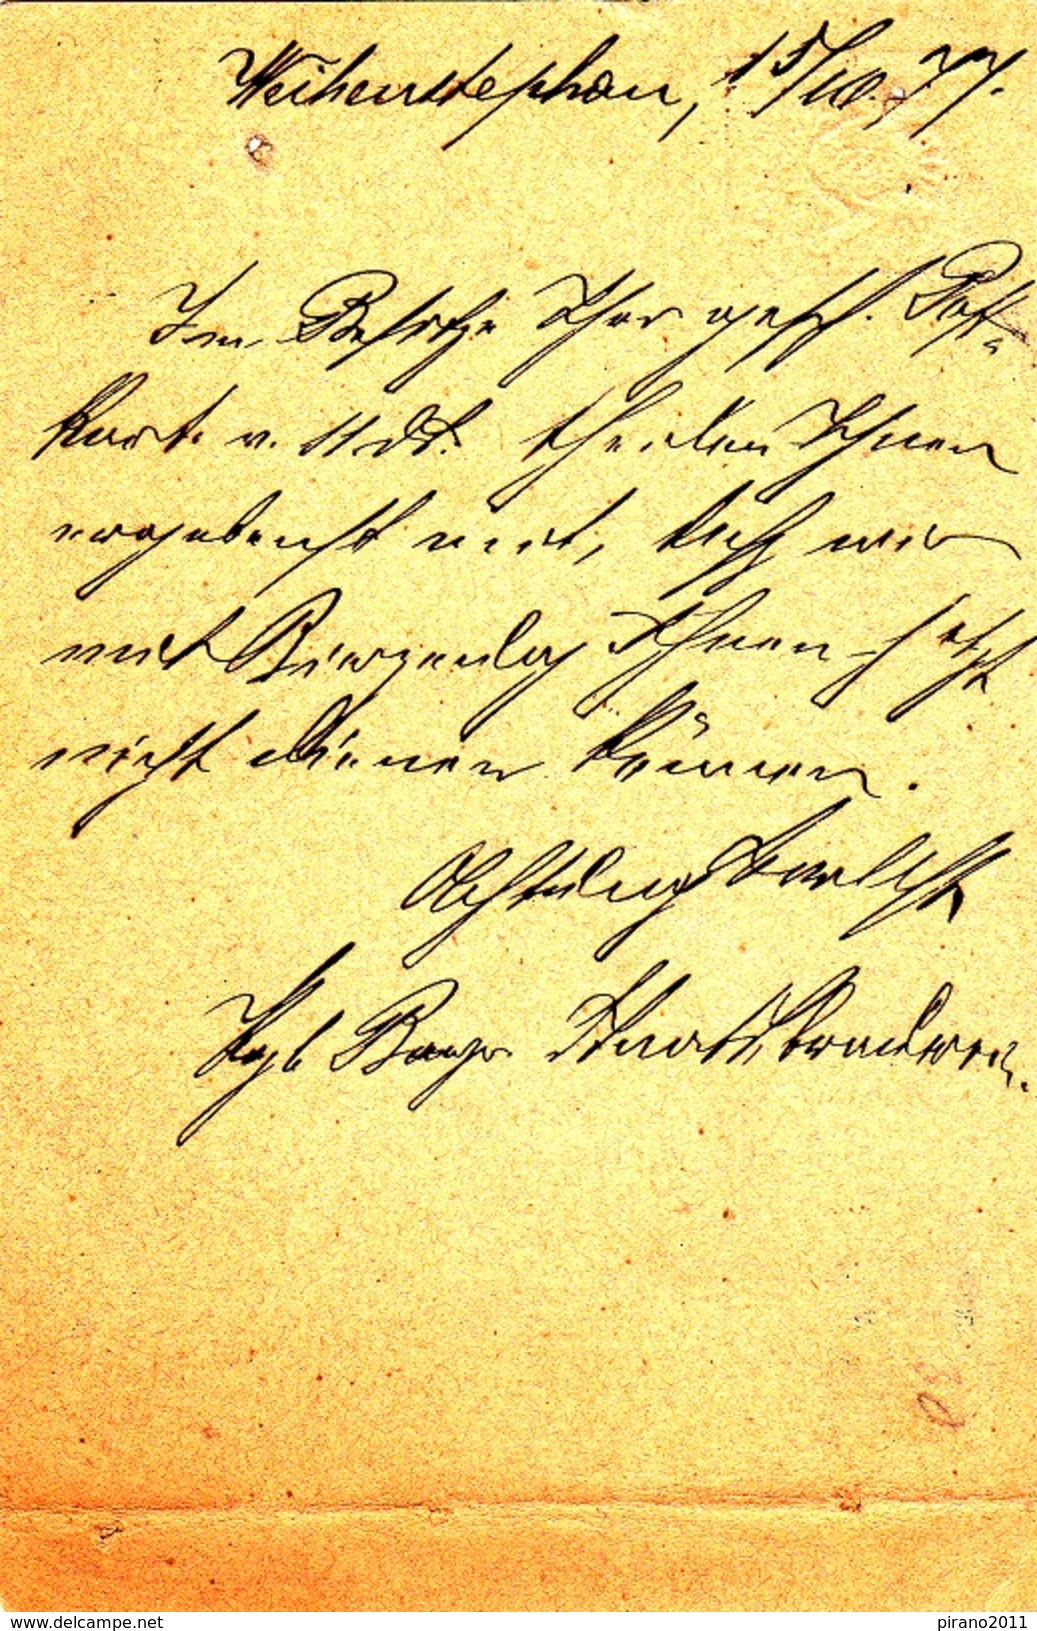 Weihenstephan, 15/10. 77.
Im Besitze Ihrer gesch. Post-
karte v. 11 ds. theilen Ihnen
ergebenst mit, daß wir
mit Bierzeug Ihnen jetzt
nicht dienen können.
Achtungsvollst
Kgl. Bayr. Staatsbrauerei.
www.delcampe.net
pirano2011